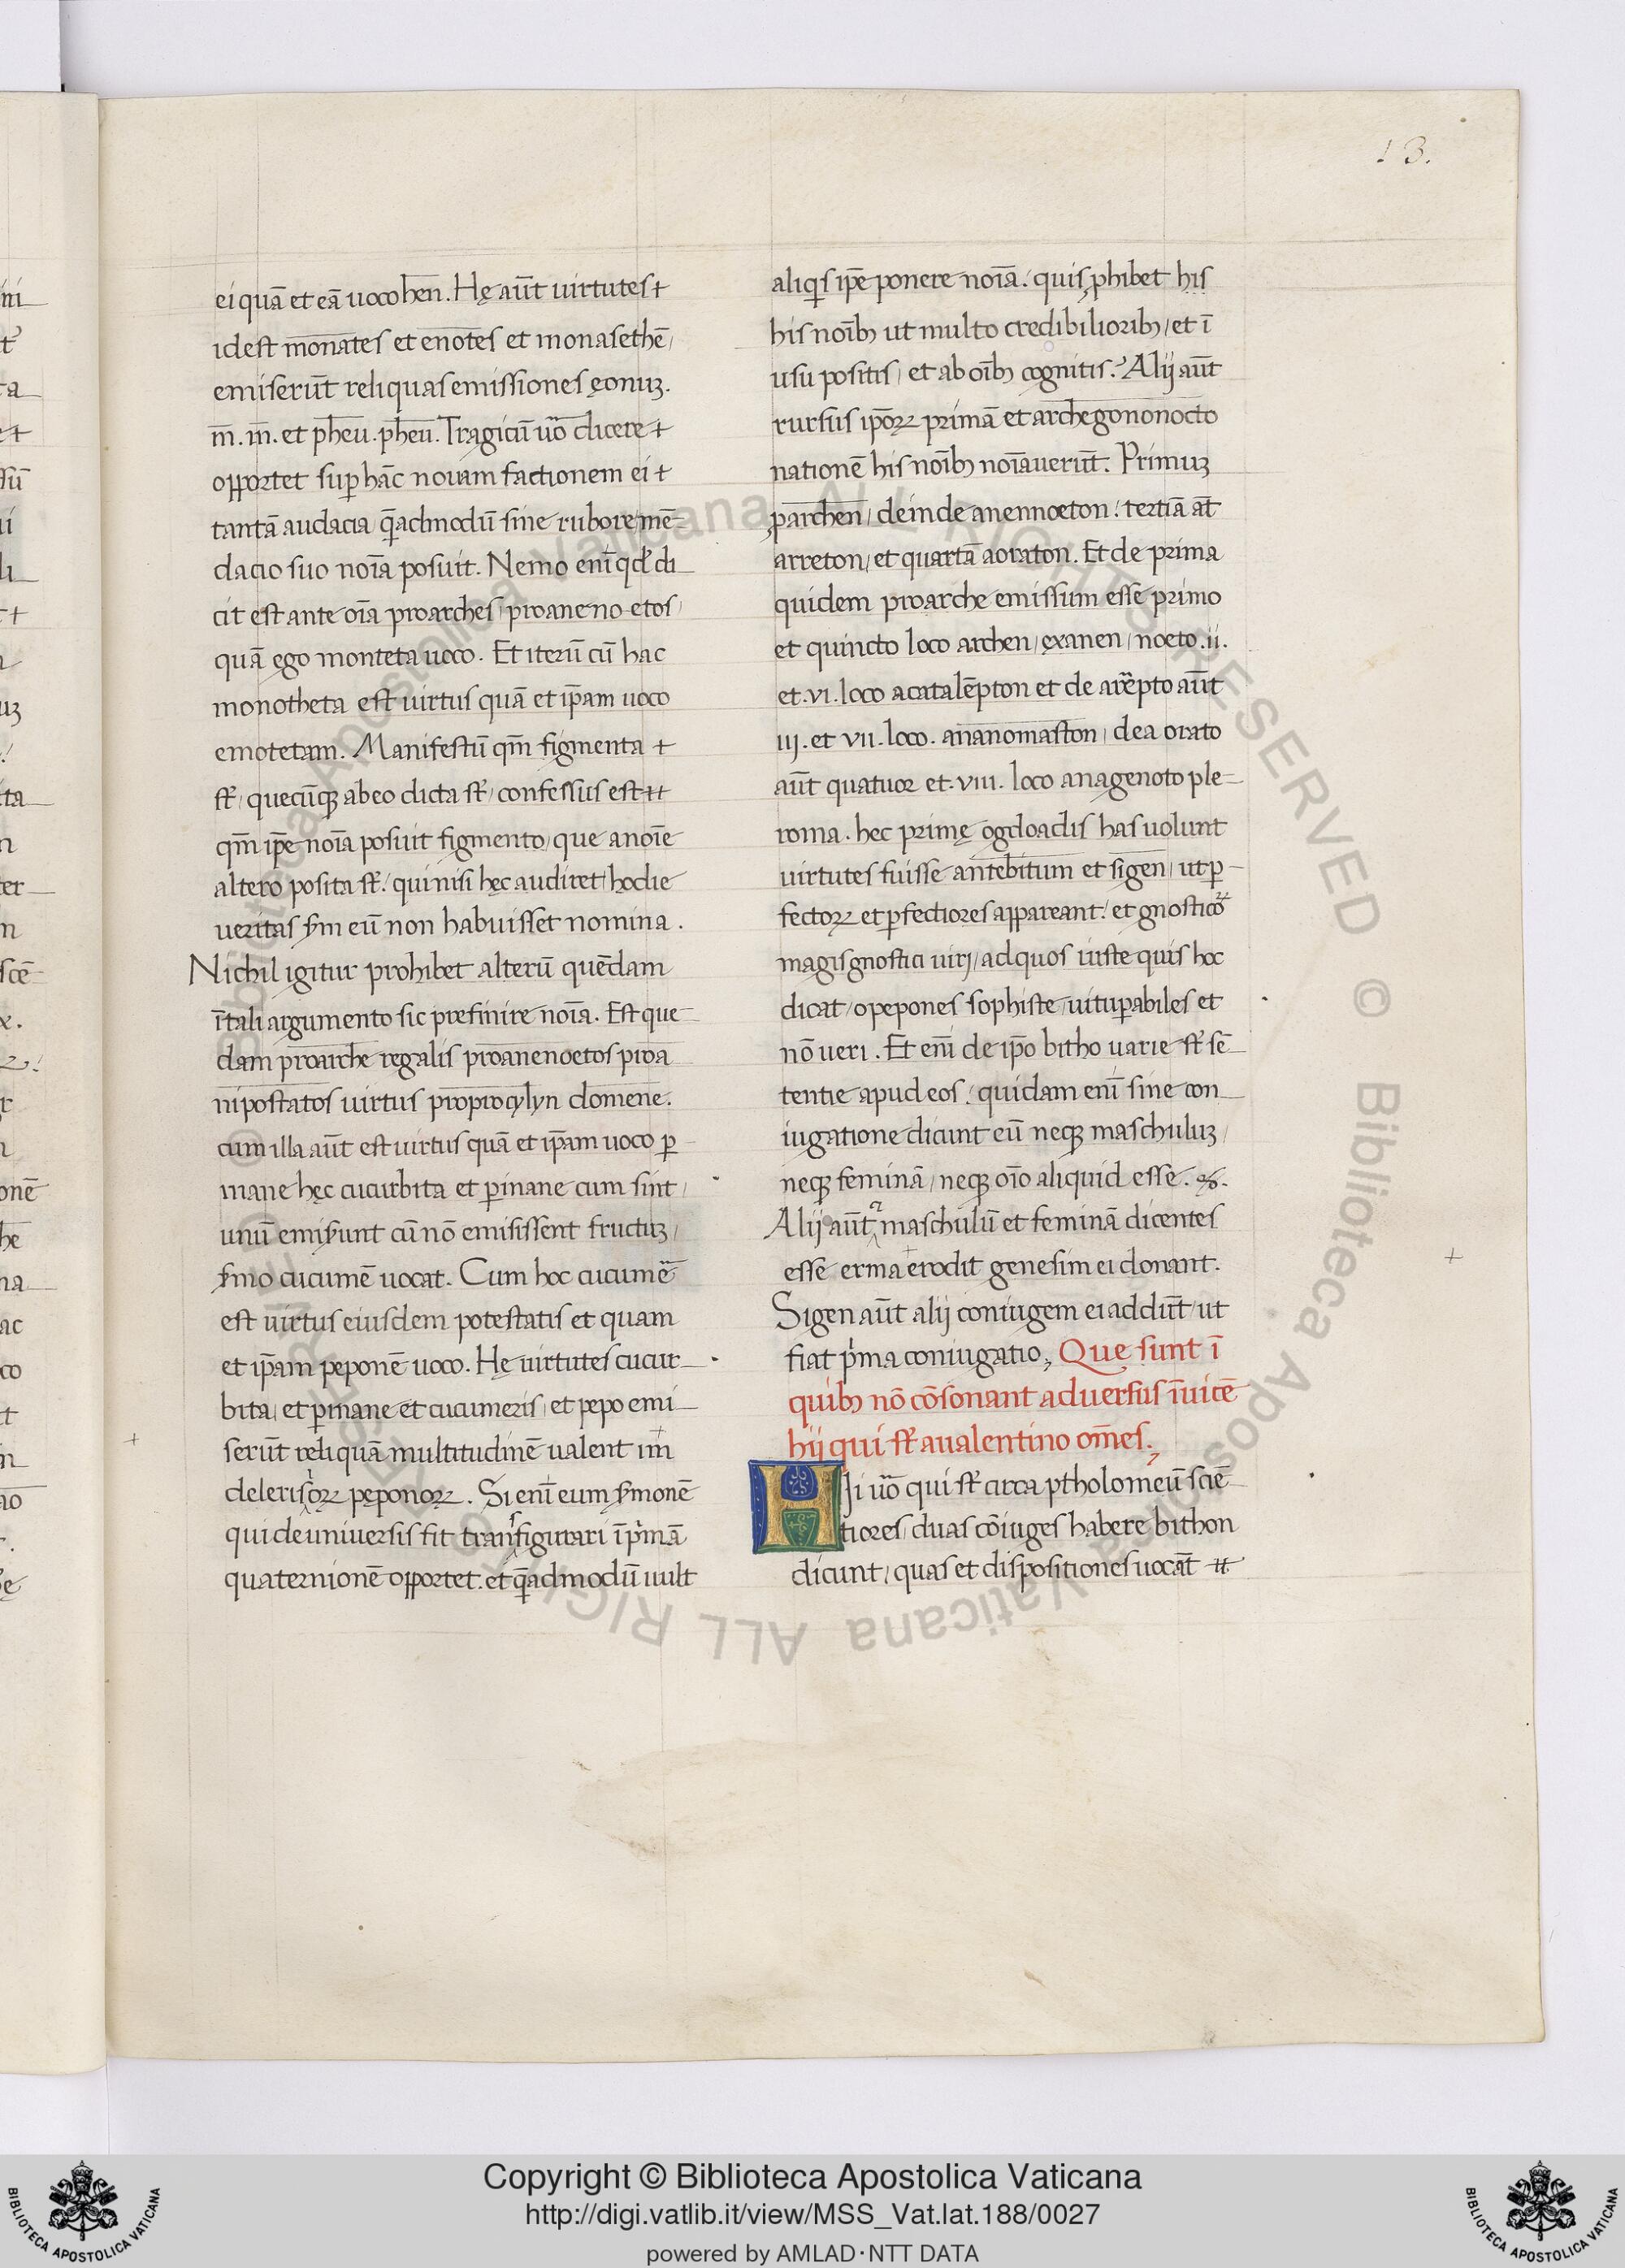 13.
ei quā et eā uoco hen. Hę aūt uirtutes +
idest monates et enotes et monasethē/
emiserūt reliquas emissiones ęonuꝫ.
m̄. m̄. et pheu. pheu. Tragicū uō dicere +
opportet suꝑ hāc nouam factionem ei +
tantā audacia q̄admodū sine rubore mē-
dacio suo noīa posuit. Nemo enī qd di
cit est ante oīa proarches/ proaneno etos/
quā ego monteta uoco. Et iterū cū hac
monotheta est uirtus quā et ip̄am uoco
emotetam. Manifestū qm̄ figmenta +
st̄/ quecūqꝫ ab eo dicta st̄/ confessus est
qm̄ ip̄e noīa posuit figmento/ que a noīe
altero posita st̄/ qui nisi hęc audiret/ hodie
ueritas sm̄ eū non habuisset nomina.
Nichil igitur prohibet alterū quēdam
ī tali argumento sic prefinire noīa. Est que
dam proarche regalis proanenoetos proa
nipostatos uirtus proprocylyn domene.
cum illa aūt est uirtus quā et ip̄am uoco ꝑ
mane hęc cucurbita et ꝑinane cum sint/
unū emiserunt cū nō emisissent fructuꝫ/
sermo cucumē uocat. Cum hoc cucumē
est uirtus eiusdem potestatis et quam
et ip̄am peponē uoco. Hę uirtutes cucur
bita/ et ꝑinane et cucumeris/ et pepo emi
serūt reliquā multitudinē ualent im
delerisorꝝ peponorꝝ. Si enī eum sermonē
qui de uniuersis fit transfigurari ī p̄mā
quaternionē opportet. et q̄admodū uult
aliqs ip̄e ponere noīa. quis ꝓhibet his
his noībꝫ ut multo credibilioribꝫ/ et ī
usu positis/ et ab oībꝫ cognitis? Alij aūt
rursus ip̄orꝝ primā et archegononocto
nationē his noībꝫ noīauerūt. Primuꝫ
ꝓarchen/ deinde anennoeton: tertiā at̄
arreton/ et quartā aoraton. Et de prima
quidem proarche emissum esse primo
et quincto loco archen/ exanen/ noeto .ii.
et .vi. loco acatalēpton et de arēpto aūt
iij. et vii. loco. ananomaston/ dea orato
aūt quatuor et .viii. loco anagenoto ple-
roma. hec primę ogdoadis has uolunt
uirtutes fuisse antebitum et sigen/ ut ꝑ-
fectorꝝ et ꝑfectiores appareant: et gnosticoꝝ
magis gnostici uiri/ ad quos iuste quis hoc
dicat/ o pepones sophiste/ uituꝑabiles et
nō ueri. Et enī de ip̄o bitho uarie st̄ sē
tentie apud eos: quidam enī sine con
iugatione dicunt eū neqꝫ maschuluꝫ/
neqꝫ feminā/ neqꝫ oīo aliquid esse.
Alij aūt maschulū et feminā dicentes
esse erma erodit genesim ei donant.
Sigen aūt alij coniugem ei addūt/ ut
fiat p̄ma coniugatio; Que sunt ī
quibꝫ nō cōsonant aduersus īuicē
hij qui st̄ aualentino om̄es.
Hij uō qui st̄ circa ptholomeū sciē-
tiores/ duas cōiuges habere bithon
dicunt/ quas et dispositiones uocāt
Copyright © Biblioteca Apostolica Vaticana
http://digi.vatlib.it/view/MSS_Vat.lat.188/0027
powered by AMLAD·NTT DATA
BIBLIOTECA APOSTOLICA VATICANA
BIBLIOTECA APOSTOLICA VATICANA
© Biblioteca Apostolica Vaticana ALL RIGHTS RESERVED © Biblioteca Apostolica Vaticana ALL RIGHTS RESERVED